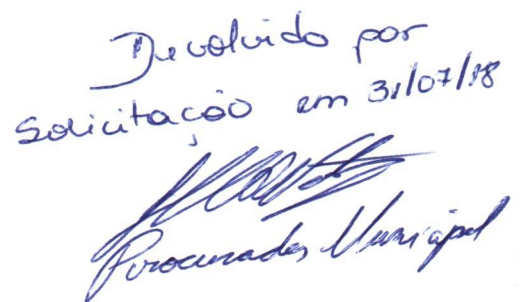 Devolvido por
Solicitação em 31/07/18
Procurador Municipal